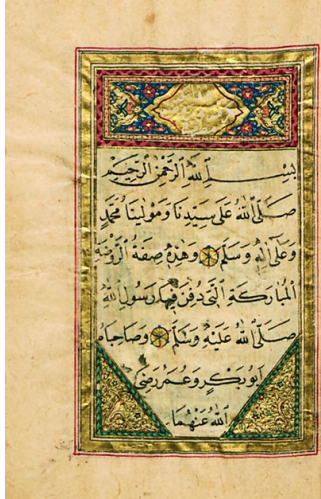 بِسْمِ اللهِ الرَّحْمٰنِ الرَّحِيْمِ
صَلَّى اللهُ عَلَى سَيِّدِنَا وَمَوْلَيْنَا مُحَمَّدٍ
وَعَلٰى اٰلِهٖ وَسَلَّمَ وَهٰذِهٖ صِفَةُ الرَّوْضَةِ
الْمُبَارَكَةِ الَّتِى دُفِنَ فِيهَا رَسُولُ اللهِ
صَلَّى اللهُ عَلَيْهِ وَسَلَّمَ وَصَاحِبَاهُ
اَبُو بَكْرٍ وَعُمَرُ رَضِىَ
اللهُ عَنْهُمَا